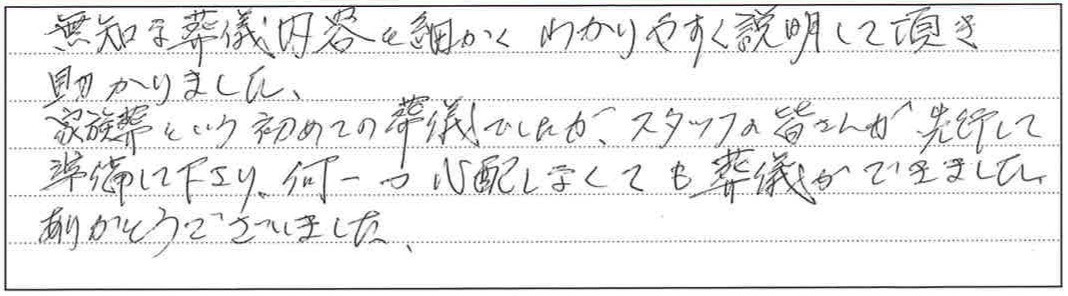 無知な葬儀内容を細かくわかりやすく説明して頂き
助かりました、
家族葬という初めての葬儀でしたが、スタッフの皆さんが先行して
準備して下さり、何一つ心配しなくても葬儀ができました、
ありがとうございました、